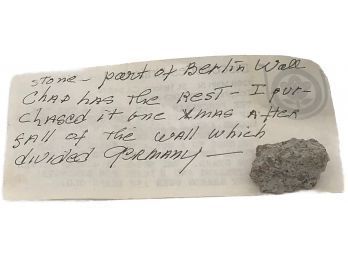 STONE - PART OF BERLIN WALL
CHAD HAS THE REST - I PUR-
CHASED IT ONE XMAS AFTER
FALL OF THE WALL WHICH
DIVIDED GERMANY -